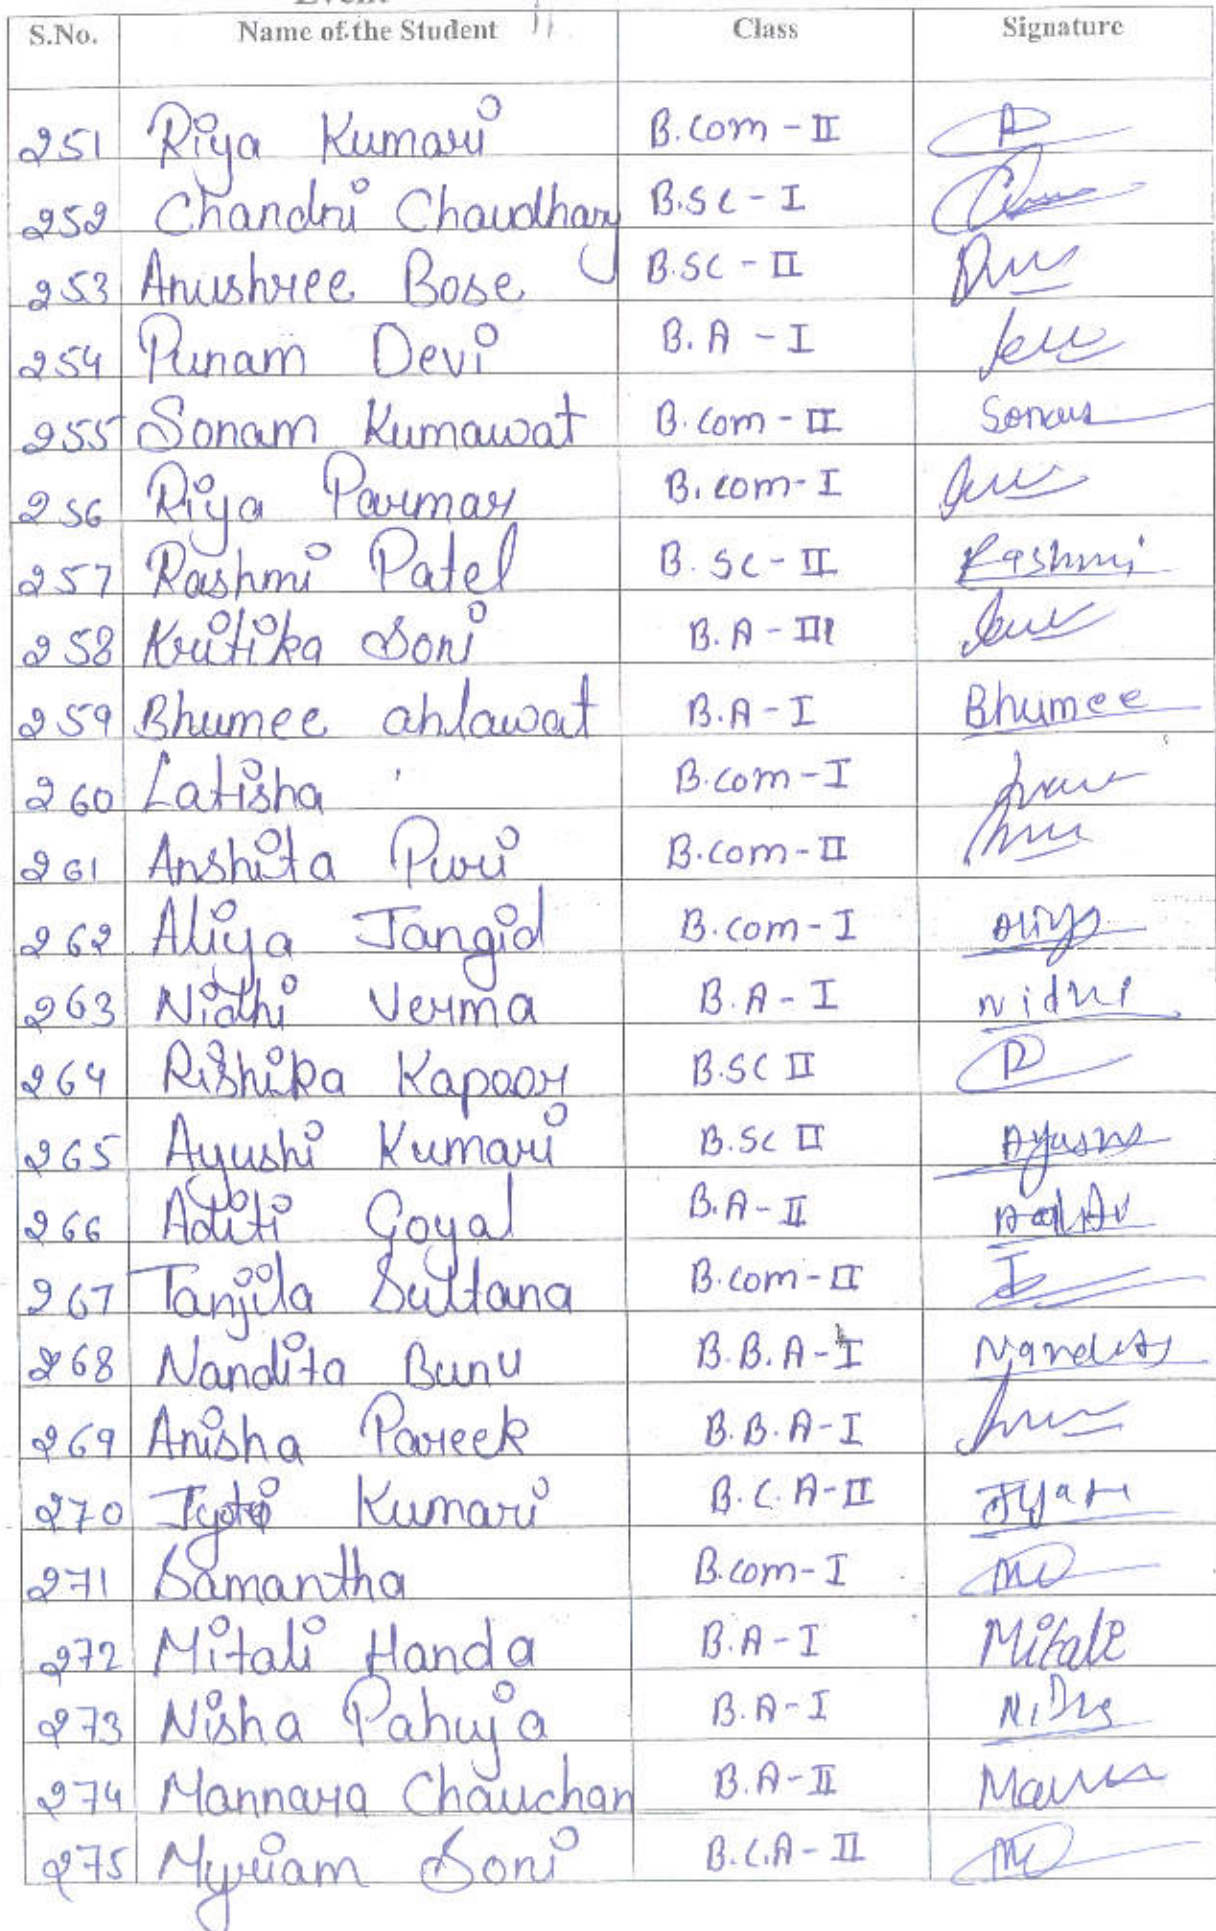 Event
S.No. Name of the Student Class Signature
251 Riya Kumari B.com - II
252 Chandni Chaudhary B.Sc - I
253 Anushree Bose B.SC - II
254 Punam Devi B.A - I
255 Sonam Kumawat B.com - II Sonam
256 Riya Parmar B.com - I
257 Rashmi Patel B.Sc - II Rashmi
258 Kritika Soni B.A - III
259 Bhumee ahlawat B.A - I Bhumee
260 Latisha B.com - I
261 Anshita Puri B.com - II
262 Aliya Jangid B.com - I Aliya
263 Nidhi Verma B.A - I Nidhi
264 Rishika Kapoor B.SC II R
265 Ayushi Kumari B.Sc II Ayushi
266 Aditi Goyal B.A - II
267 Tanjila Sultana B.com - II
268 Nandita Bunu B.B.A - I Nandita
269 Anisha Pareek B.B.A - I
270 Jyoti Kumari B.C.A - II Jyoti
271 Samantha B.com - I
272 Mitali Handa B.A - I Mitali
273 Nisha Pahuja B.A - I
274 Mannara Chauchan B.A - II
275 Myriam Soni B.C.A - II